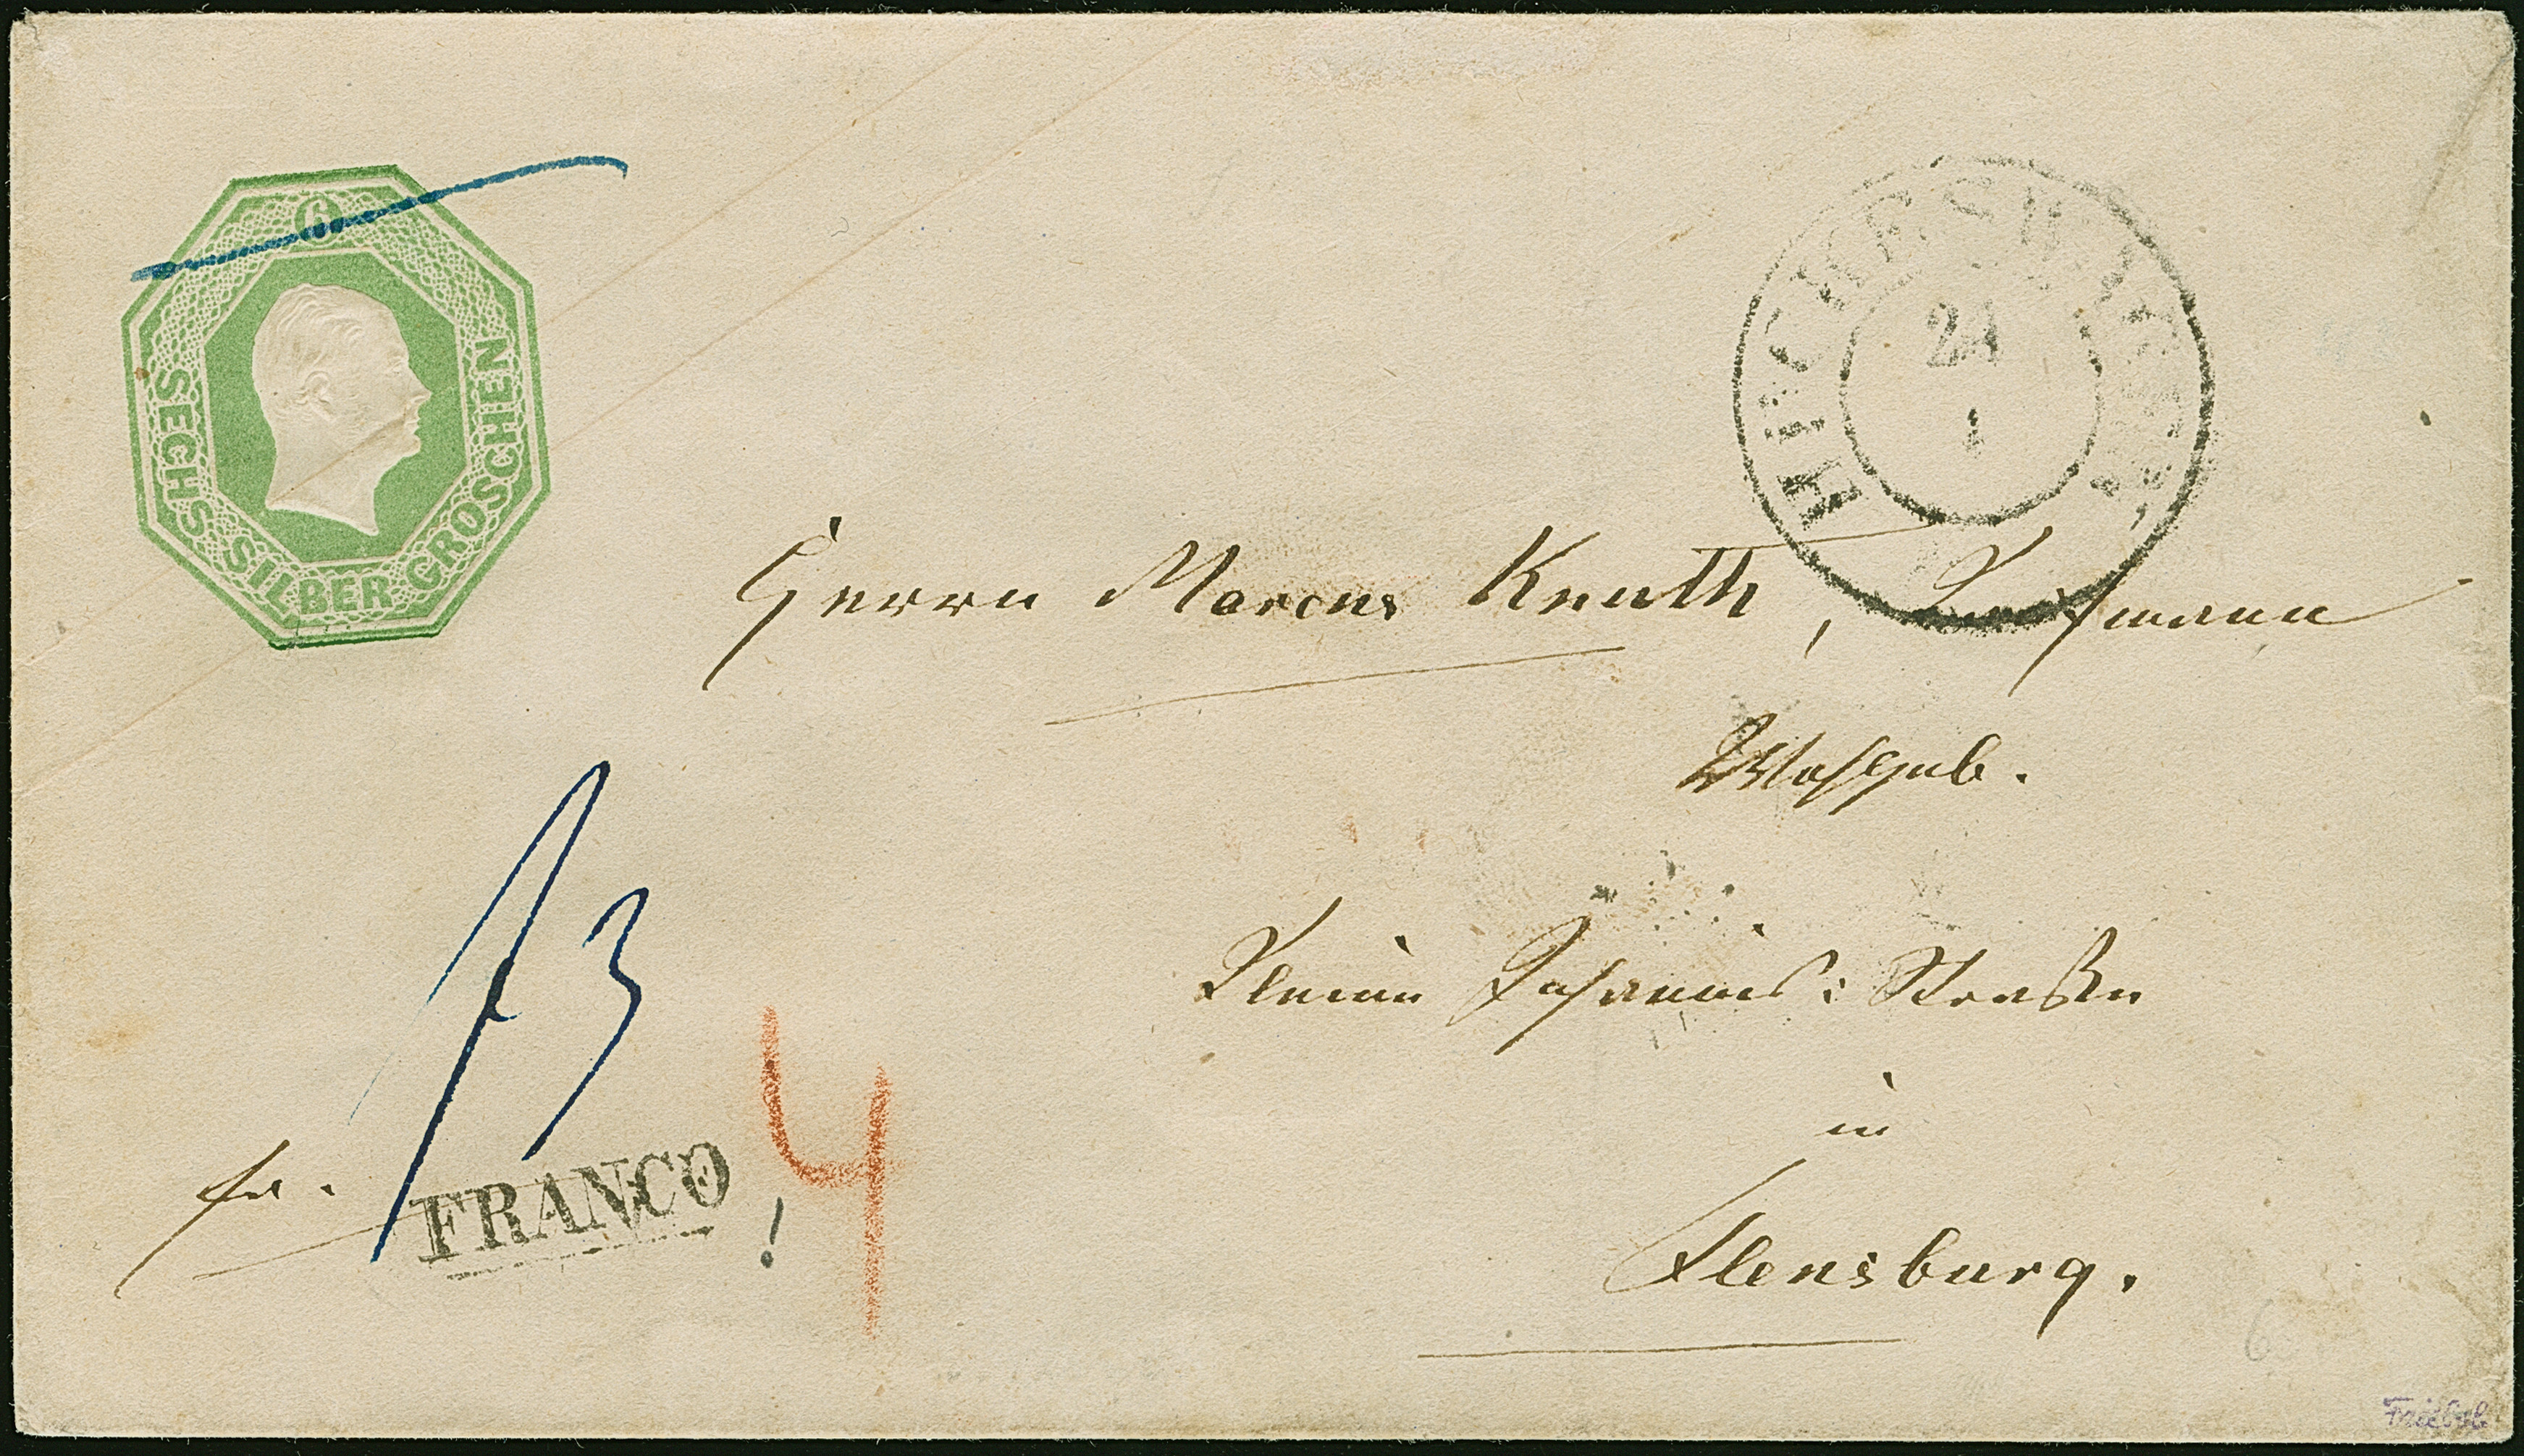 6
SECHS SILBER GROSCHEN
HÜCKESWAGEN
24
1
Herrn Marcus Knuth, Kaufmann
Wohlgeb.
Kleine Johannis: Straße
in
Flensburg.
fr.
FRANCO
4
6